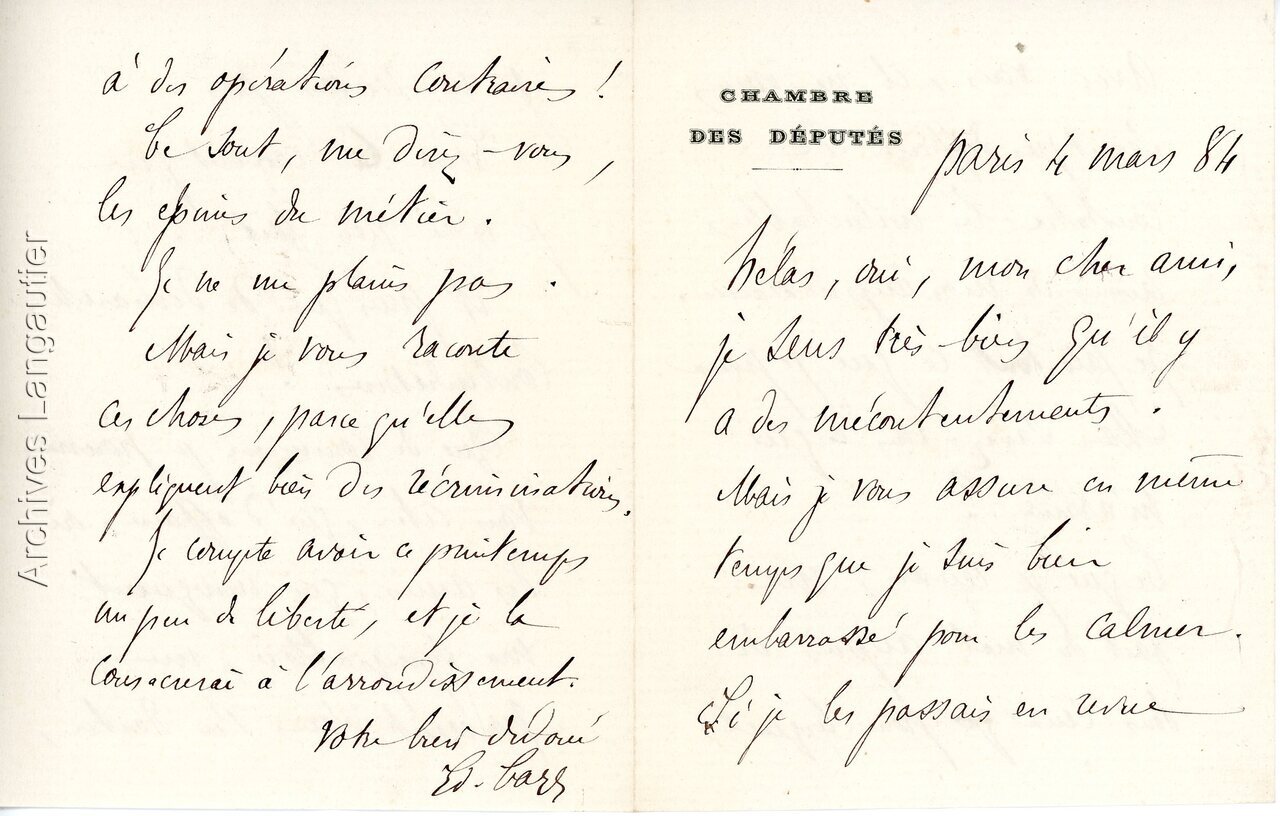 CHAMBRE
DES DÉPUTÉS
Paris 4 mars 84
Hélas, oui, mon cher ami,
je sens très-bien qu'il y
a des mécontentements.
Mais je vous assure en même
temps que je suis bien
embarrassé pour les calmer.
Si je les passais en revue
à des opérations contraires !
Ce sont, me direz-vous,
les épines du métier.
Je ne me plains pas.
Mais je vous raconte
ces choses, parce qu'elles
expliquent bien des récriminations.
Je compte avoir ce printemps
un peu de liberté, et je la
consacrerai à l'arrondissement.
Votre bien dévoué
Ed.
Archives Langautier